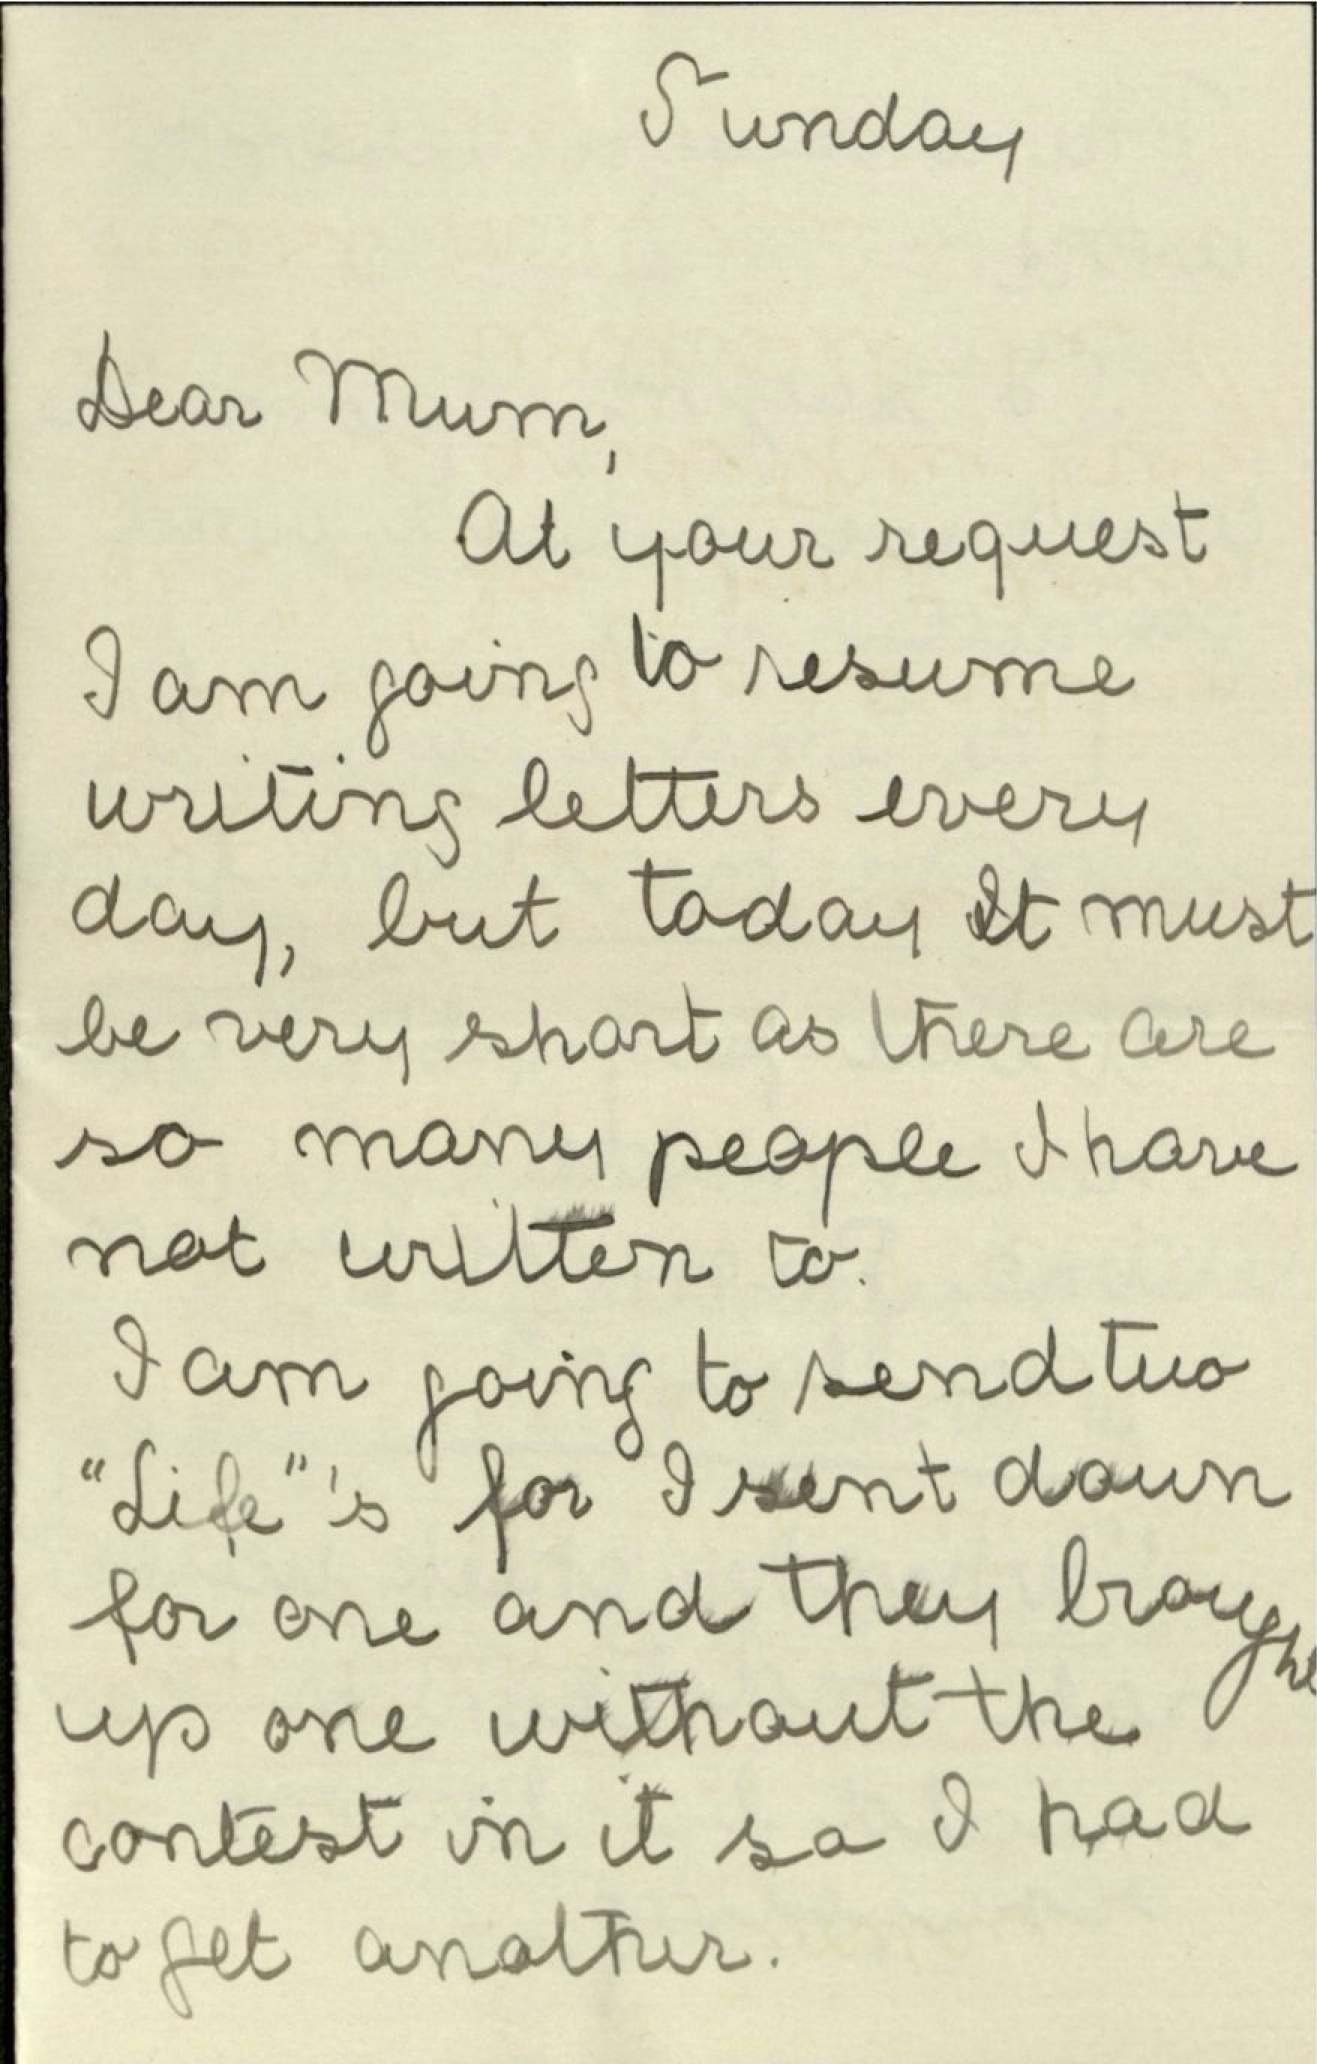 Sunday
Dear Mum,
At your request
I am going to resume
writing letters every
day, but today It must
be very short as there are
so many people I have
not written to.
I am going to send two
"Life"'s for I sent down
for one and they brought
up one without the
contest in it so I had
to get another.